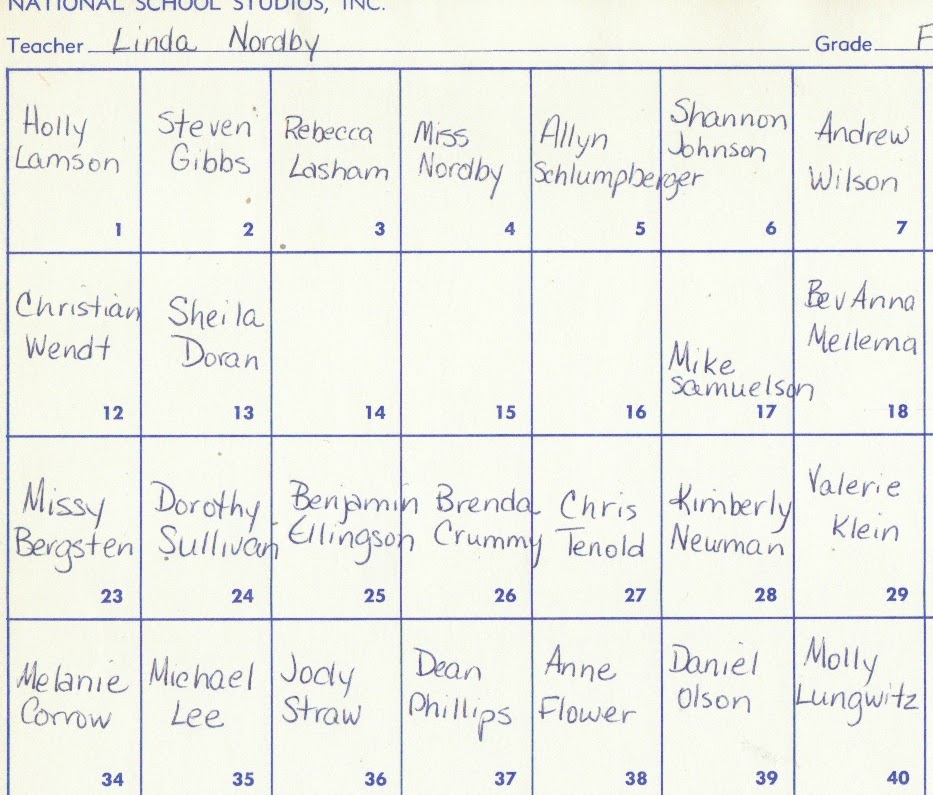 NATIONAL SCHOOL STUDIOS, INC.
Teacher Linda Nordby Grade
Holly
Lamson
1
Steven
Gibbs
2
Rebecca
Lasham
3
Miss
Nordby
4
Allyn
Schlumpberger
5
Shannon
Johnson
6
Andrew
Wilson
7
Christian
Wendt
12
Sheila
Doran
13
14
15
16
Mike
Samuelson
17
BevAnna
Mellema
18
Missy
Bergsten
23
Dorothy
Sullivan
24
Benjamin
Ellingson
25
Brenda
Crummy
26
Chris
Tenold
27
Kimberly
Newman
28
Valerie
Klein
29
Melanie
Corrow
34
Michael
Lee
35
Jody
Straw
36
Dean
Phillips
37
Anne
Flower
38
Daniel
Olson
39
Molly
Lungwitz
40